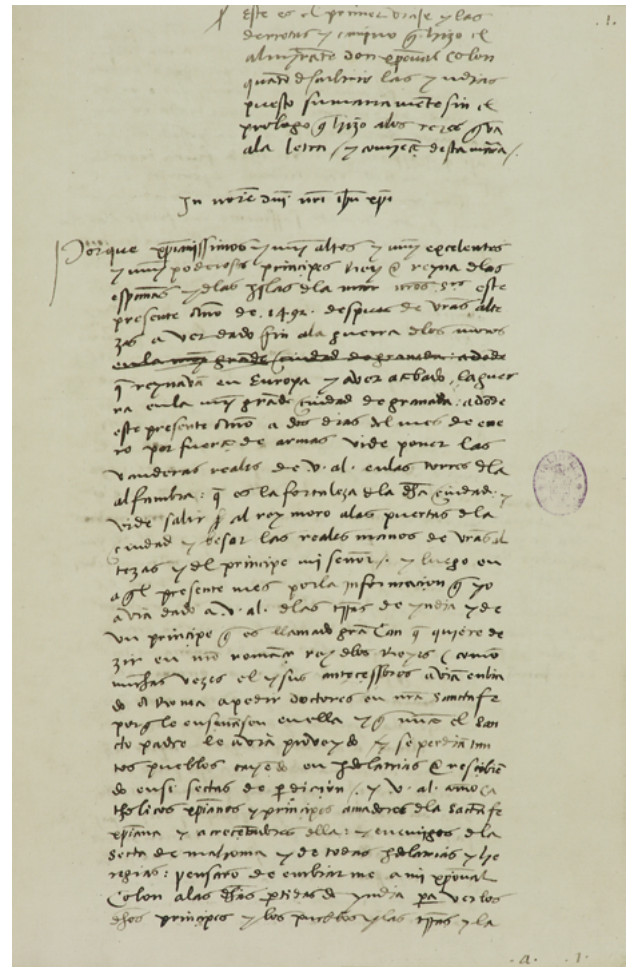 .1.
este es el primer viaje y las
derrotas y camino q̃ hizo el
almirãte don xpõual Colon
quãdo descubrio las yndias
puesto sumariamẽte sin el
prologo q̃ hizo a los reyes q̃ va
a la letra / y comiẽça desta manera /.
In noĩe dnĩ nrĩ ihũ xpĩ
Porque xpĩanissimos y muy altos y muy excelentes
y muy poderosos principes Rey e Reyna de las
españas y de las yslas de la mar nros sres este
presente Año de .1492. despues de vras alte
zas aver dado fin a la guerra de los moros
en la muy grande ciudad de granada: adõde
q̃ reynavã en Europa y aver acabado la guer
ra en la muy grãde ciudad de granada: adõde
este presente Año a dos dias del mes de ene
ro por fuerça de armas vide poner las
vanderas reales de v. al. en las torres de la
alfambra: q̃ es la fortaleza de la dha ciudad: y
vide salir al rey moro a las puertas de la
ciudad y besar las reales manos de vras al
tezas y del principe mi señor /. y luego en
aq̃l presente mes por la informacion q̃ yo
avia dado a v. al. de las trras de yndia y de
Un principe q̃ es llamado grã Can q̃ quiere de
zir en nro romãçe rey de los Reyes / como
muchas vezes el y sus antecessores aviã enbia
do a Roma a pedir doctores en nra sancta fe
porq̃ le enseñasen en ella y q̃ nũca el san
cto padre le avia proveydo / y se perdiã tan
tos pueblos cayẽdo en ydolatrias e rescibiẽ
do en si sectas de perdiciõn /. y v. al. como ca
tholicos xpĩanos y principes amadores de la sãcta fe
xpĩana y acreçẽtadores della: y enemigos de la
secta de mahoma y de todas ydolatrias y he
regias: pensarõ de enbiarme a mi xpõual
Colon a las dhas ptidas de yndia pa ver los
dhos principes y los pueblos y las trras y la
.a. .1.